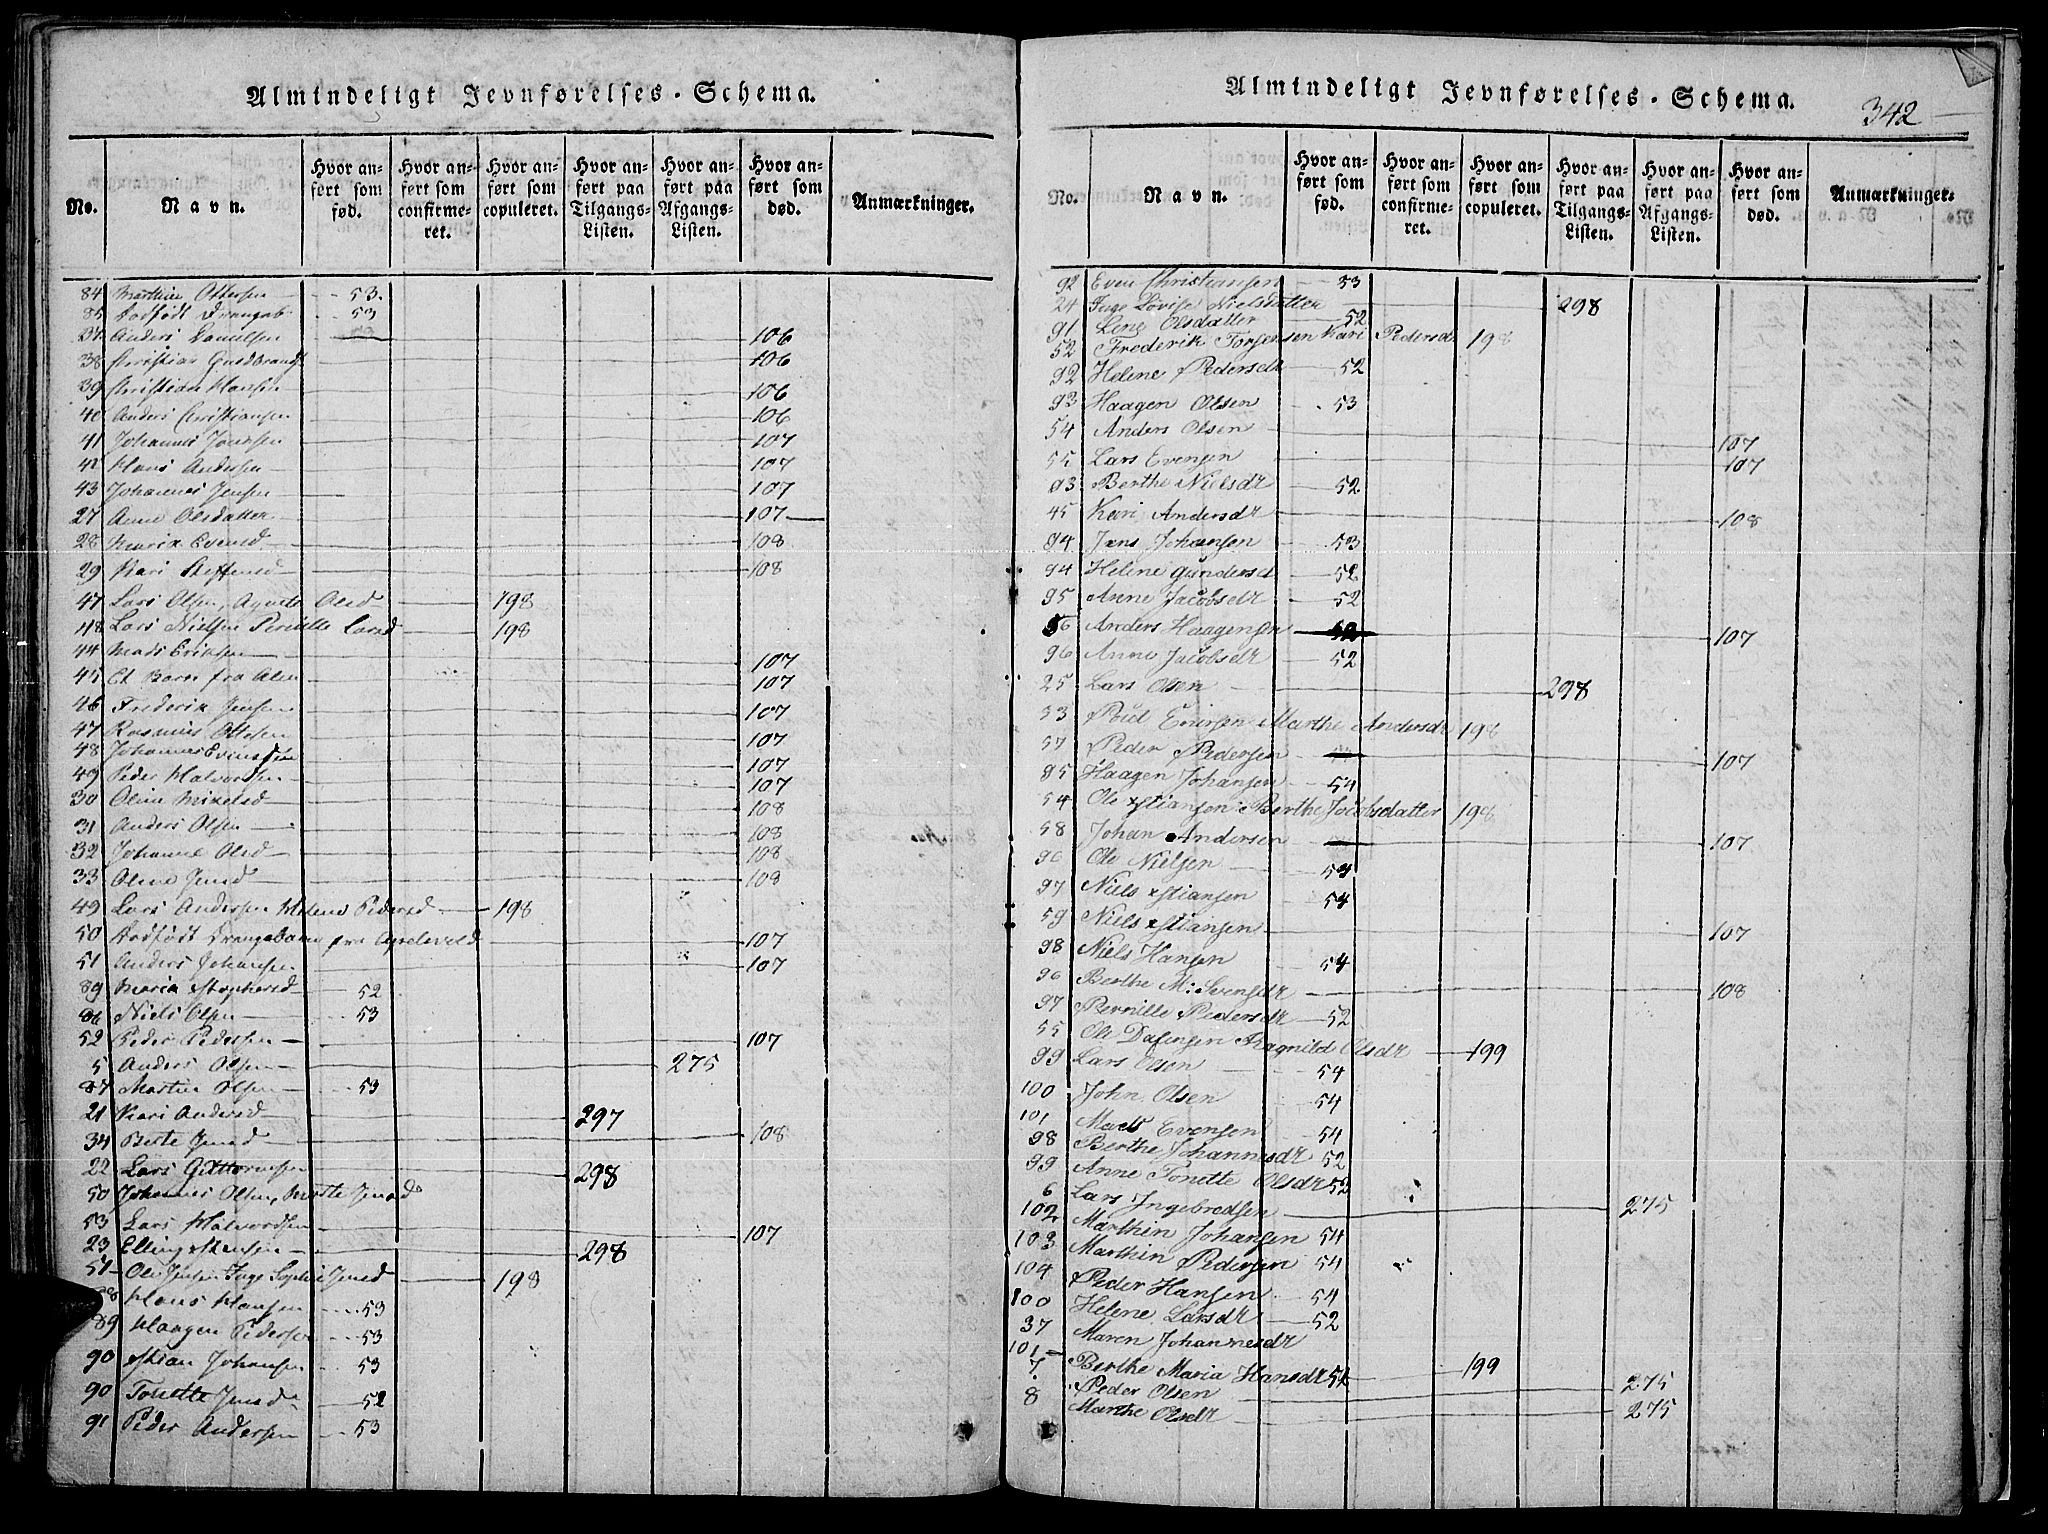 Almindeligt Jevnførelses-Schema.
No. Navn. Hvor anført som fød. Hvor anført som confirmeret. Hvor anført som copuleret. Hvor anført paa Tilgangs-Listen. Hvor anført paa Afgangs-Listen. Hvor anført som død. Anmærkninger.
84 Marthin Ottersen 53.
85 Dødfødt Drengeb. 53
37 Anders Danielsen 106
38 Christian Gudbrands 106
39 Christian Hansen 106
40 Anders Christiansen 106
41 Johannes 107
42 Hans Andersen 107
43 Johannes Jensen 107
27 Anne Olsdatter 107
28 Maria Evensd 108
29 Kari Steffensd 108
47 Lars Olsen, Agnete Olsd 198
48 Lars Nielsen Pernille Larsd 198
44 Mads Eriksen 107
45 Et Barn fra 107
46 Frederik Jensen 107
47 Rasmus Ottesen 107
48 Johannes 107
49 Peder Halvorsen 107
30 Oline Mikelsd 108
31 Anders Olsen 108
32 Johanne Olsd 108
33 Oline Jensd 108
49 Lars Andersen Helene Pedersd 198
50 Dødfødt Drengebarn fra 107
51 Anders Johansen 107
89 Maria 52
86 Niels Olsen 53
52 Peder Pedersen 107
5 Anders Olsen 275
87 Martin Olsen 53
21 Kari Andersd 297
34 Berte Jensd 108
22 Lars Guttormsen 298
50 Johannes Olsen, Marte Jensd
53 Lars Halvordsen 107
23 Elling 298
51 Ole Jensen Inge Sophie Jensd 198
88 Hans Hansen 53
89 Haagen Pedersen 53
90 Xstian Johansen 53
90 Tonette Jensd 52
91 Peder Andersen 53
Almindeligt Jevnførelses-Schema.
342
No. Navn. Hvor anført som fød. Hvor anført som confirmeret. Hvor anført som copuleret. Hvor anført paa Tilgangs-Listen. Hvor anført paa Afgangs-Listen. Hvor anført som død. Anmærkninger.
92 Even Christiansen 53
24 Inge Lovise Nielsdatter 298
91 Lene Olsdatter 52
52 Frederik Torgersen Kari Pedersd 198
92 Helene Pedersdr 52
93 Haagen Olsen 53
54 Anders Olsen 107
55 Lars Evensen 107
93 Berthe Nielsdr 52
45 Kari Andersdr 108
94 Jens Johansen 53
94 Helene Gundersd 52
95 Anne Jacobsdr 52
56 Anders Haagensen 52 107
96 Anne Jacobsdr 52
25 Lars Olsen 298
53 Marthe Andersdr 198
57 Peder Pedersen 107
95 Haagen Johansen 54
54 Ole Xstiansen Berthe Jacobsdatter 198
58 Johan Andersen 107
96 Ole Nielsen 54
97 Niels Xstiansen 54
59 Niels Xstiansen 107
98 Niels Hansen 54
96 Berthe M: Svensdr 108
97 Pernille Pedersdr 52
55 Ole Dafinsen Ragnild Olsdr 199
99 Lars Olson 54
100 John Olsen 54
101 Mads Evensen 54
98 Berthe Johannesdr 52
99 Anne Tonette Olsdr 52
6 Lars Ingebredsen 275
102 Marthin Johansen 54
103 Marthin Pedersen 54
104 Peder Hansen 54
100 Helene Larsdr 52
37 Maren Johannesdr
101 Berthe Maria Hansdr 52 199
7 Peder Olsen 275
8 Marthe Olsdr 275